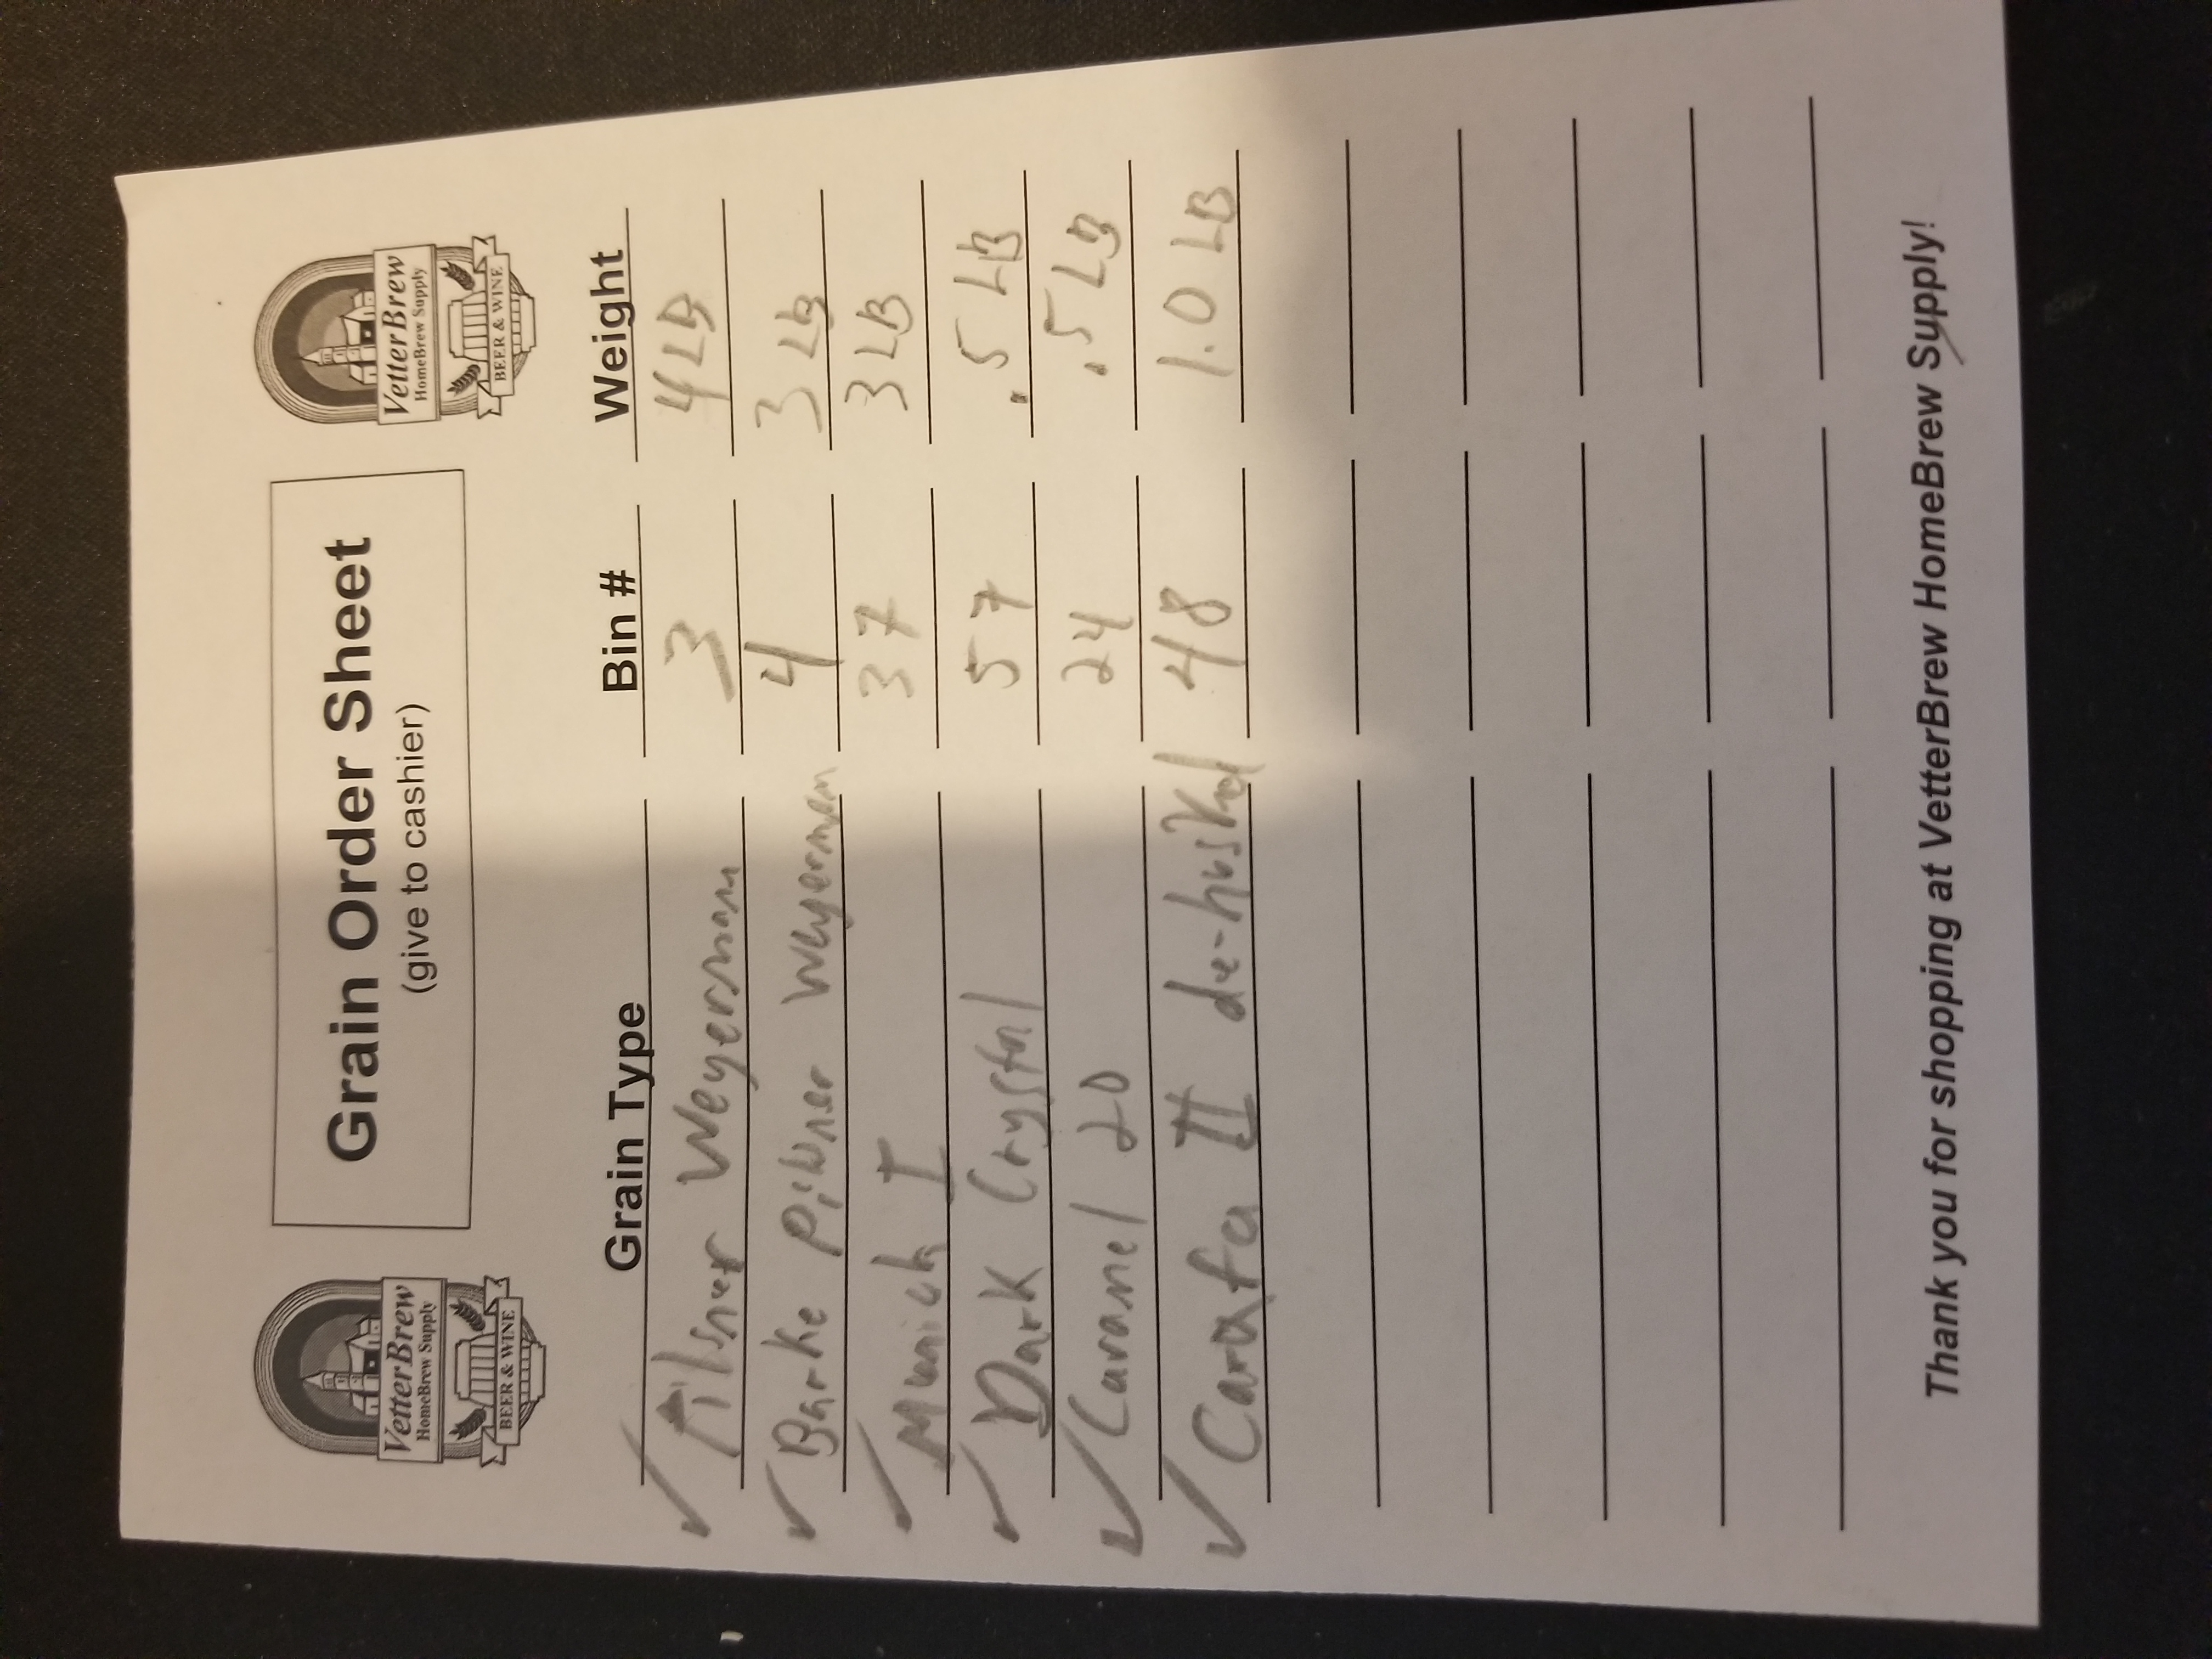 VetterBrew
HomeBrew Supply
BEER & WINE
Grain Order Sheet
(give to cashier)
VetterBrew
HomeBrew Supply
BEER & WINE
Grain Type Bin # Weight
✓ Pilsner Weyermann 3 4 LB
✓ Barke Pilsner Weyerman 4 3 LB
✓ Munich I 37 3 LB
✓ Dark Crystal 57 .5 LB
✓ Caramel 20 24 .5 LB
✓ Carafa II de-husked 48 1.0 LB
Thank you for shopping at VetterBrew HomeBrew Supply!